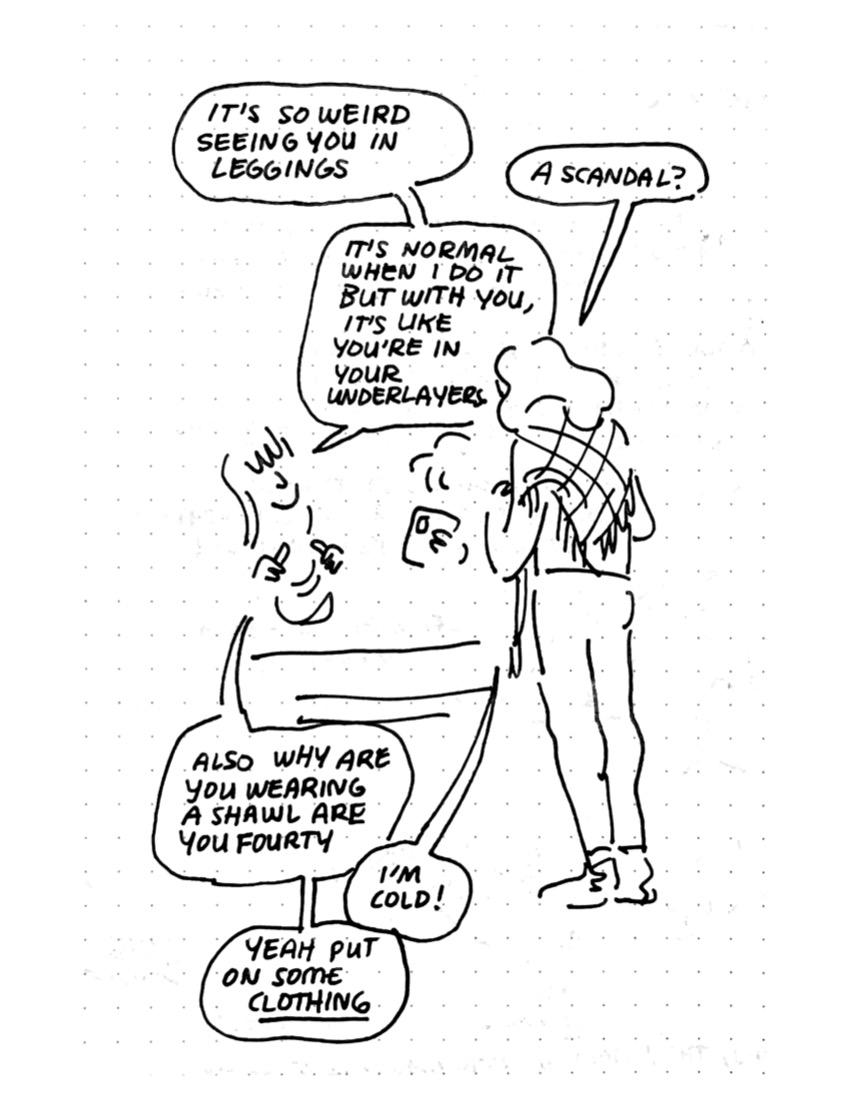 IT'S SO WEIRD
SEEING YOU IN
LEGGINGS
A SCANDAL?
IT'S NORMAL
WHEN I DO IT
BUT WITH YOU,
IT'S LIKE
YOU'RE IN
YOUR
UNDERLAYERS
ALSO WHY ARE
YOU WEARING
A SHAWL ARE
YOU FOURTY
I'M
COLD!
YEAH PUT
ON SOME
CLOTHING